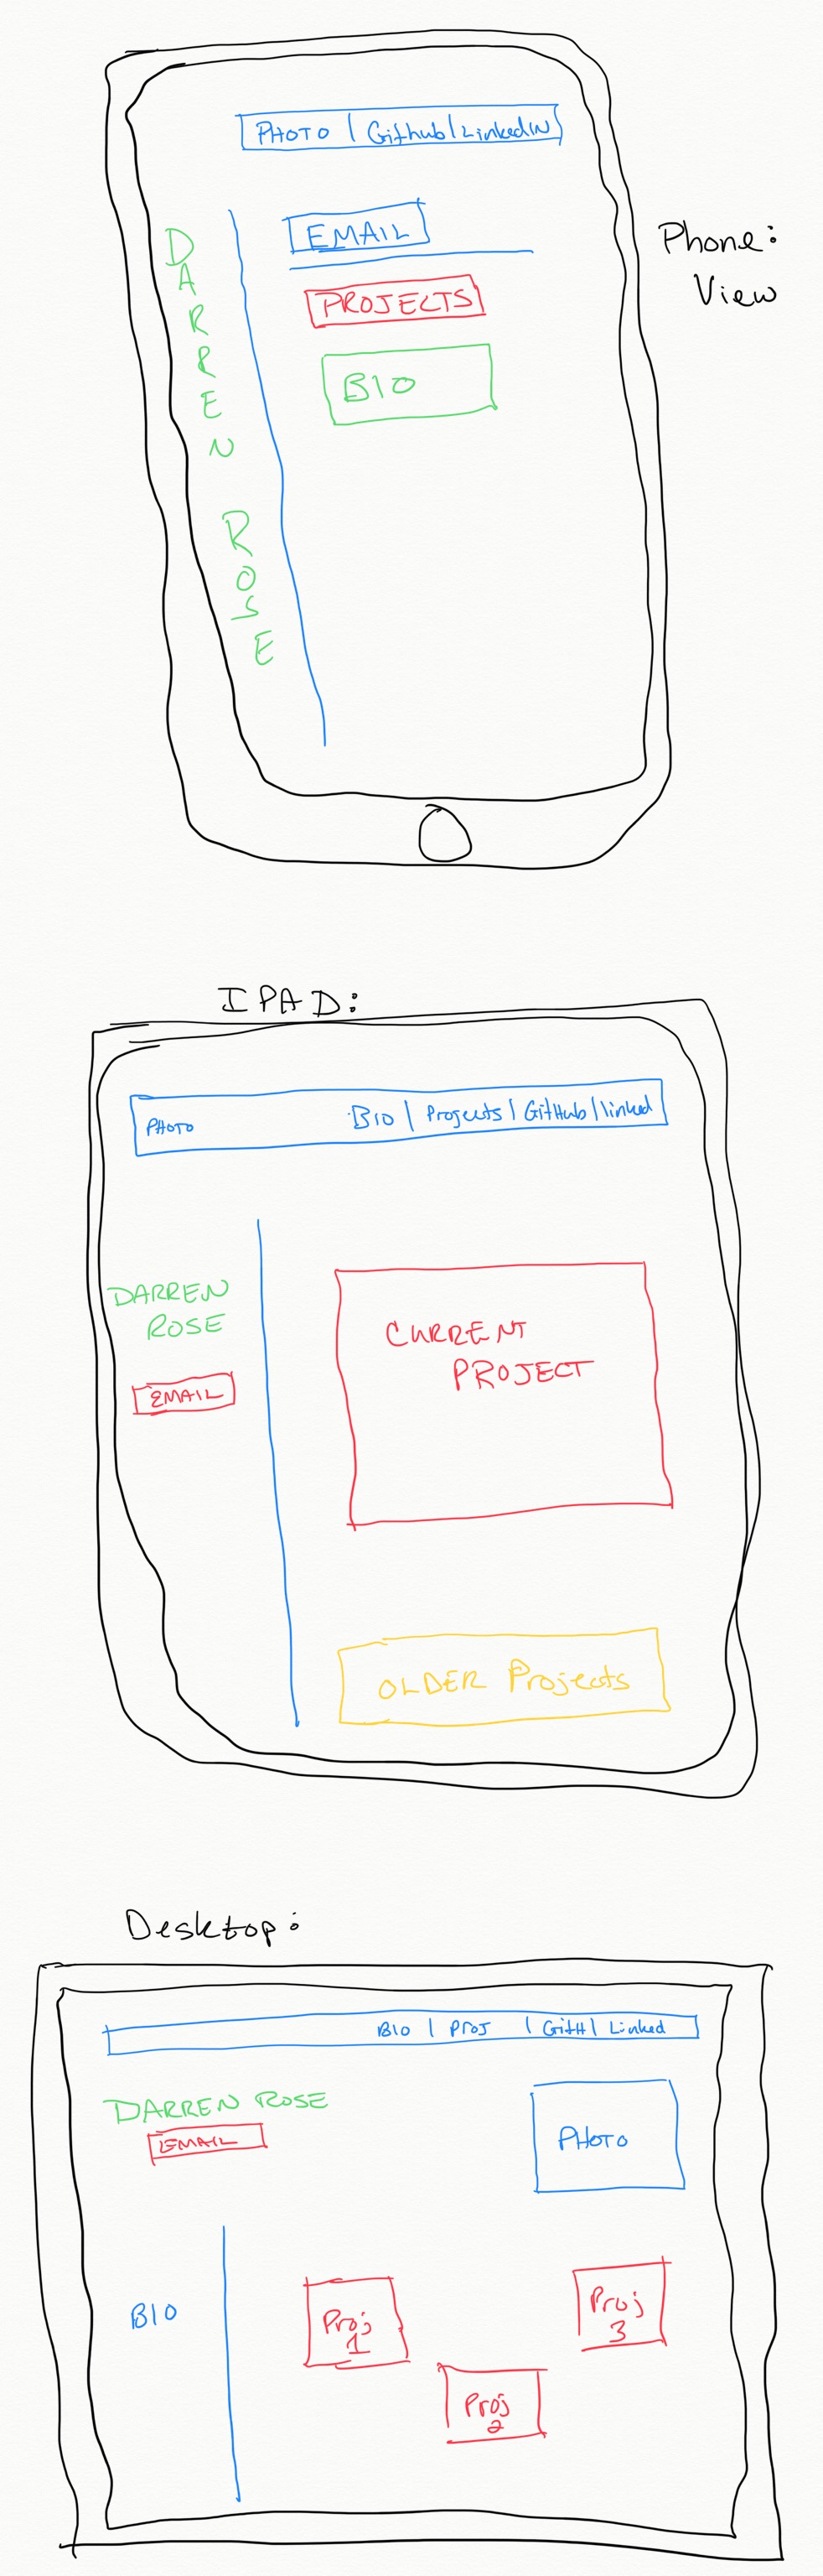 PHOTO | Github | LinkedIN
Phone:
View
EMAIL
PROJECTS
BIO
DARREN
ROSE
IPAD:
PHOTO BIO | Projects | GitHub | linked
DARREN
ROSE
EMAIL
CURRENT
PROJECT
OLDER Projects
Desktop:
BIO | Proj | GitH | Linked
DARREN ROSE
EMAIL
PHOTO
BIO
Proj
1
Proj
2
Proj
3